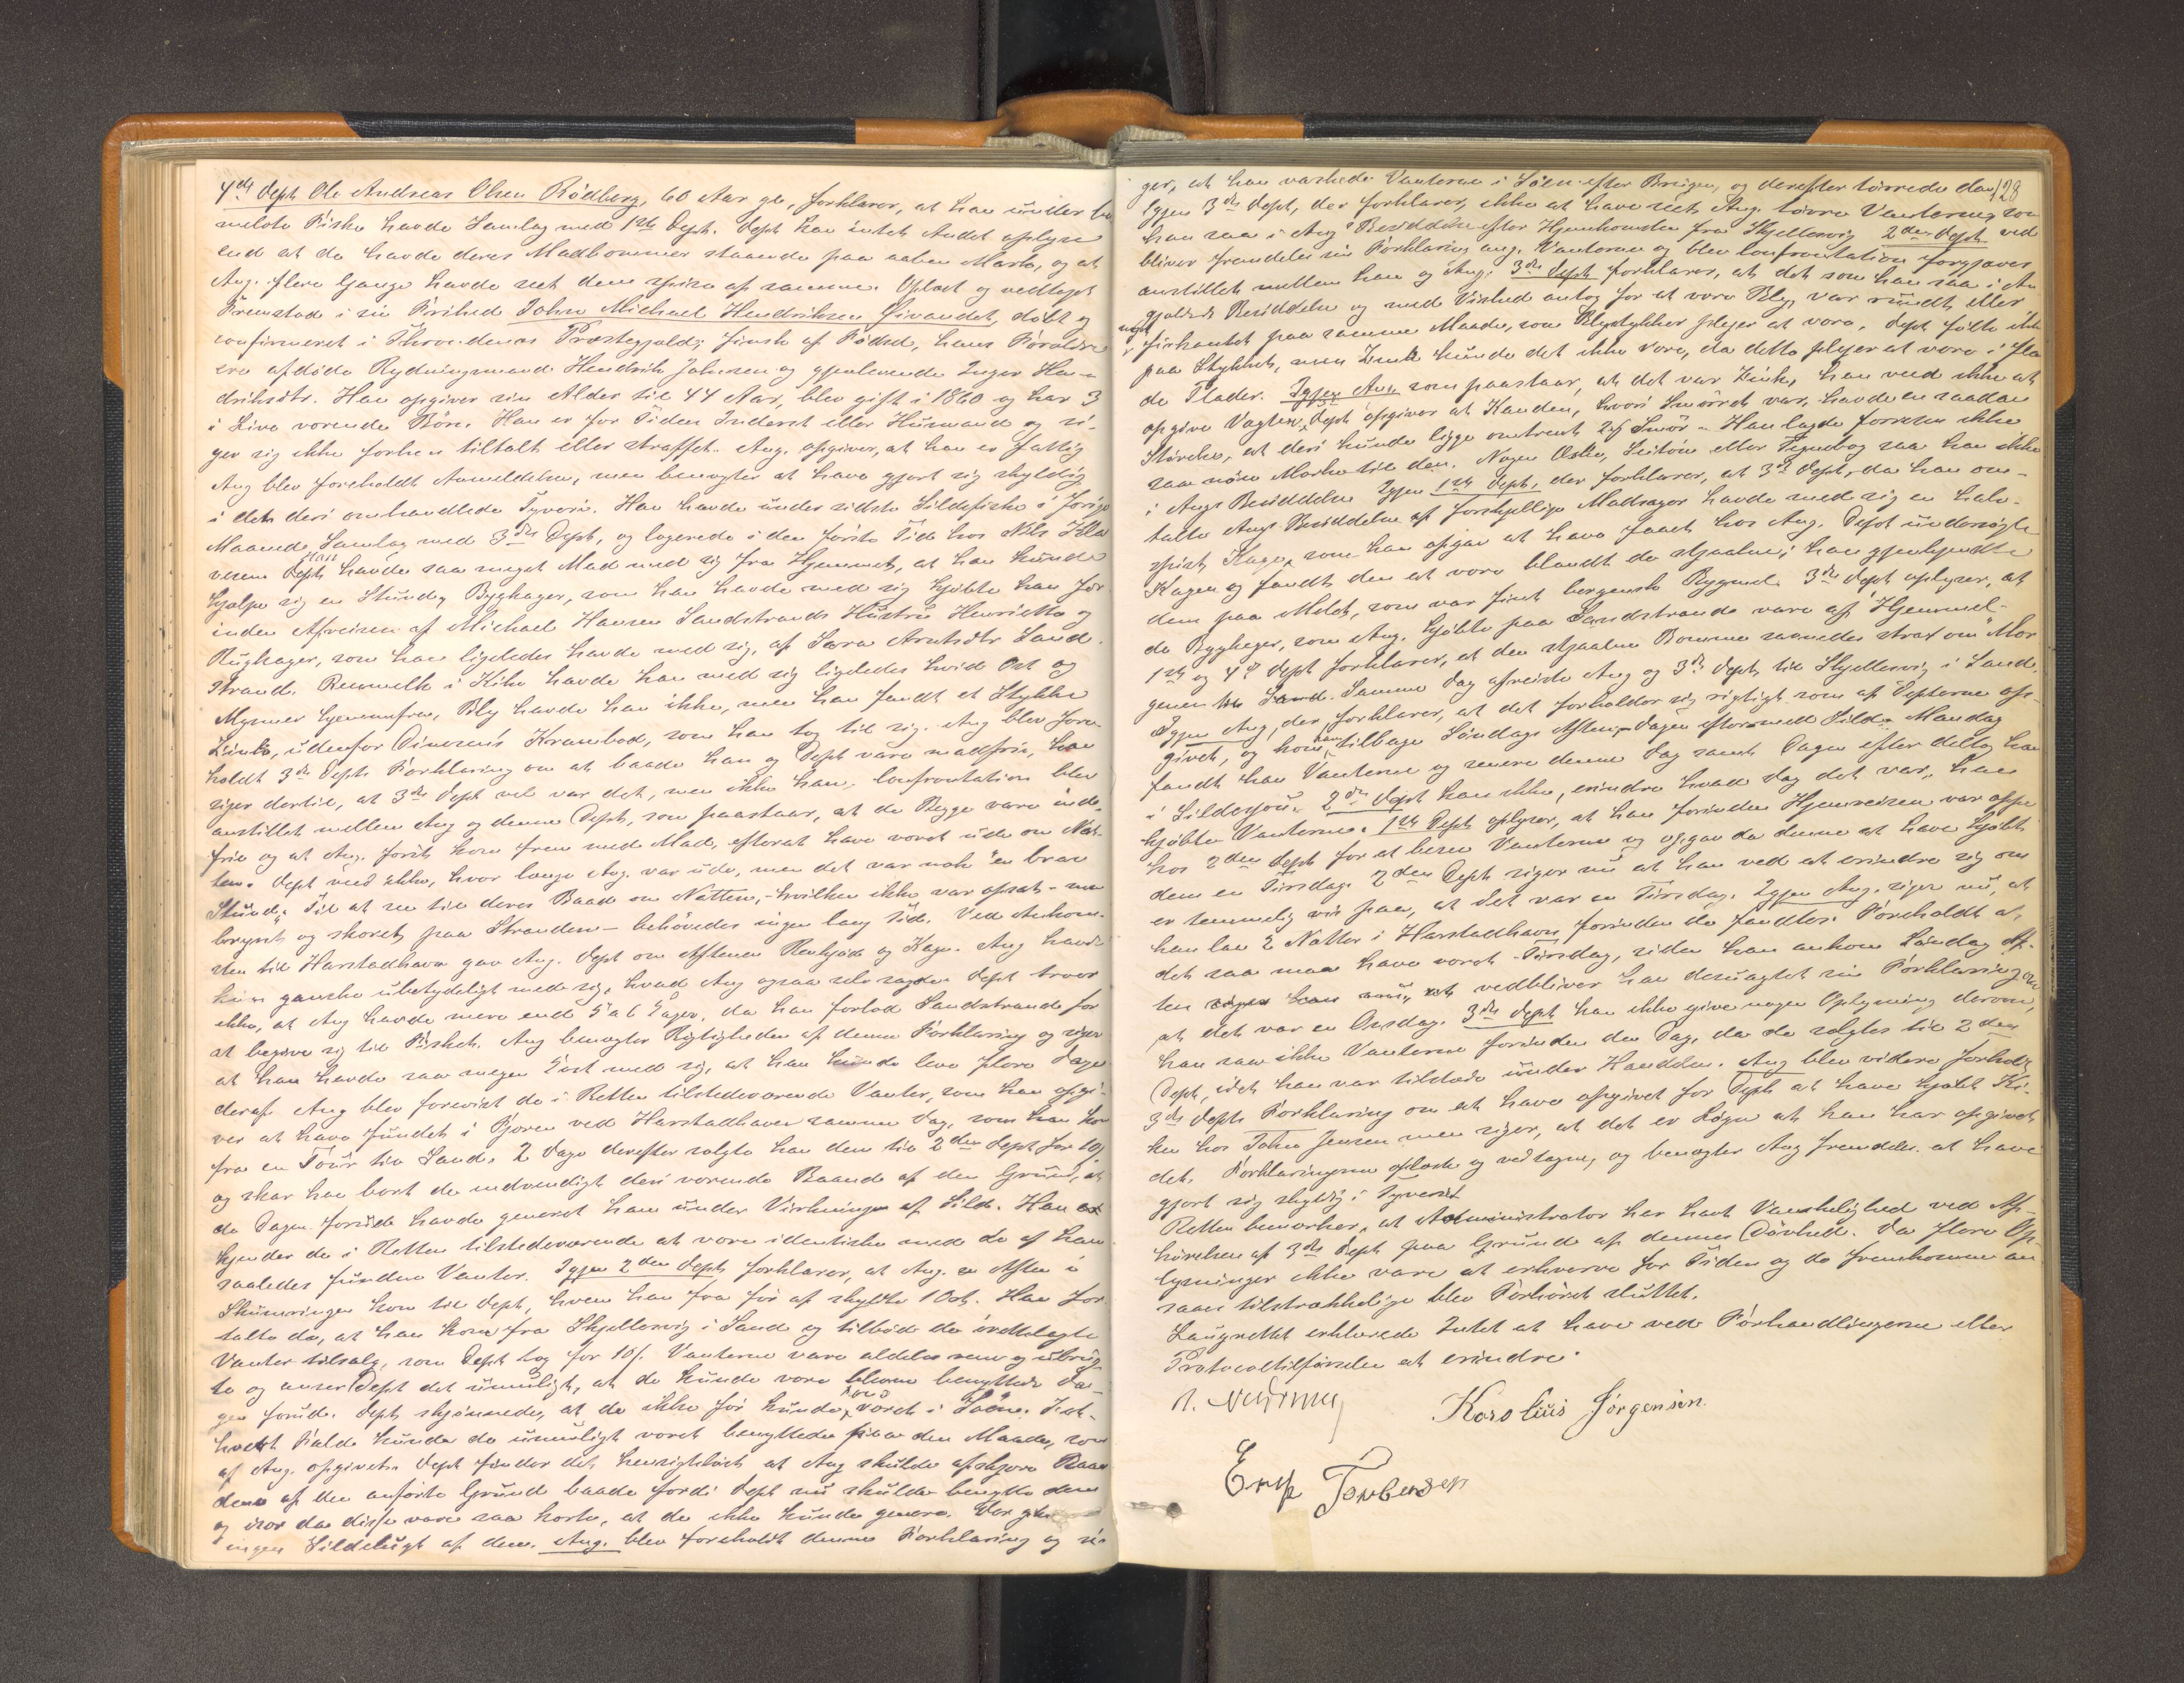 4de Dept Ole Andreas Olsen Rödberg, 60 Aar gl., forklarer, at han under be
meldte Fiske havde Samlag med 1ste Dept. Dept kan intet Andet oplyse
end at de havde deres Madbommer staaende paa aaben Mark, og at
Ang. flere Gange havde seet dem spise af samme. Oplæst og vedtaget
Fremstod i sin Frihed Johan Michael Hendriksen Givandet, döbt og
confirmeret i Throndenæs Præstegjeld, finsk af Födsel, hans Forældre
ere afdöde Rydningsmand Hendrik Johnsen og gjenlevende Inger Hen-
driksdtr. Han opgiver sin Alder til 44 Aar, blev gift i 1860 og har 3
i Live værende Börn. Han er for Tiden Inderst eller Husmand og si-
ger sig ikke forhen tiltalt eller straffet. Ang. opgiver, at han er fattig
Ang blev foreholdt Anmeldelsen, men benegter at have gjort sig skyldig
i det deri omhandlede Tyveri. Han havde under sidste Sildefiske i forige
Maaned Samlag med 3die Dept, og logerede i den förste Tid hos Nils
Han havde saa meget Mad med sig fra Hjemmet, at han kunde
hjælpe sig en Stund, Bygkager, som han havde med sig kjöbte han for
inden Afreisen af Michael Hansen Sandstrands Hustru Henrikke og
Rugkager, som han ligeledes havde med sig, af Sara Arntsdtr Sand
strand. Renmelk i Kike havde han med sig ligeledes hvid Ost og
Mysmer hjemmefra, Bly havde han ikke, men han fandt et Stykke
Zink, udenfor Dinesens Krambod, som han tog til sig. Ang blev fore
holdt 3die Depts Forklaring om at baade han og Dept vare madfrie, han
siger dertil, at 3die Dept vel var det, men ikke han. Confrontation blev
anstillet mellem Ang og denne Dept, som paastaar, at de Begge vare mad-
frie og at Ang. först kom frem med Mad, efterat have været ude om Nat
ten. Dept ved ikke, hvor længe Ang. var ude, men det var nok "en brav
Stund". Til at se til deres Baad om Natten, - hvilken ikke var opsat - men
og skoret paa Stranden - behövedes ingen lang Tid. Ved Ankom-
sten til Harstadhavn gav Ang. Dept om Aftenen Renkjöd og Kage. Ang havde
kun ganske ubetydeligt med sig, hvad Ang ogsaa selv sagde. Dept troer
ikke, at Ang havde mere end 5 a 6 Kager, da han forlod Sandstrand for
at begive sig til Fisket. Ang benegter Rigtigheden af denne Forklaring og siger
at han havde saa megen Kost med sig, at han kunde leve flere Dage
deraf. Ang blev forevist de i Retten tilstedeværende Vanter, som han opgi-
ver at have fundet i Fjæren ved Harstadhavn samme Dag, som han kom
fra en Tour til Sand. 2 Dage derefter solgte han dem til 2den Dept for 10 s
og skar han bort de indvendigt deri værende Baand af den Grund, at
de Dagen forud havde generet ham under Virkningen af Sild. Han er
kjender de i Retten tilstedeværende at være identiske med de af ham
saaledes fundne Vanter. Igjen 2den Dept forklarer, at Ang. en Aften i
Skumringen kom til Dept, hvem han fra för af skyldte 1 Ort. Han for
talte da, at han kom fra Skjellesvig i Sand og tilböd de
Vanter tilsalg, som Dept tog for 10 s. Vanterne vare aldeles rene og ubrug-
te og anser Dept det umuligt, at de kunde være blevne benyttede Da-
gen forud. Dept skjönnede, at de ikke för kunde have været i Söen. I et-
hvert Fald kunde de umuligt været benyttede paa den Maade, som
af Ang. opgivet. Dept finder det hensigtslöst at Ang skulde afskjære Baan
dene af den anförte Grund baade fordi Dept nu skulde benytte dem
og især da disse vare saa korte, at de ikke kunde genere. Der
ingen Sildelugt af dem. Ang. blev foreholdt denne Forklaring og si-
128
ger, at han vaskede Vanterne i Söen efter Brugen, og derefter törrede dem
Igjen 3die Dept, der forklarer, ikke at have seet Ang. törre Vanterne, som
han saa i Angs Besiddelse efter Hjemkomsten fra Skjellesvig. 2den Dept ved
bliver fremdeles sin Forklaring ang. Vanterne og blev Confrontation forgjæves
anstillet mellem ham og Ang. 3die Dept forklarer, at det som han saa i An
gjældendes Besiddelse og med Vished antog for at være Bly, var rundt eller
firkantet paa samme Maade, som Blystykker plejer at være. Dept fölte ikke
paa Stykket, men Zink kunde det ikke være, da dette plejer at være i fla
de Plader. Igjen Ang som paastaar, at det var Zink, kan ved ikke at
opgive Vægten. Dept opgiver at Kanden, hvori Smörret var, havde en saadan
Störrelse, at deri kunde ligge omtrent Smör - Han lagde forresten ikke
saa nöie Mærke til den. Nogen Æske, eller saa han ikke
i Angs Besiddelse Igjen 1ste Dept, der forklarer, at 3die Dept, da han om-
talte Angs Besiddelse af forskjellige Madsager havde med sig en halv-
spist Kage, som han opgav at have faaet hos Ang. Dept undersögte
Kagen og fandt den at være blandt de stjaalne; han gjenkjendte
dem paa Melet, som var fint bergensk Bygmel. 3die Dept oplyser, at
de Bygkager, som Ang. kjöbte paa Sandstrand vare af "Hjemmel-
1ste og 4de Dept forklarer, at den stjaalne Bomme savnedes strax om Mor
genen Samme Dag afreiste Ang og 3die Dept til Skjellesvig i Sand.
Igjen Ang, der forklarer, at det forholder sig rigtigt som af Depterne op-
givet, og kom han tilbage Söndags Aften. Dagen efter med Sild. Mandag
fandt han Vanterne og senere denne Dag samt Dagen efter deltog han
i Sildesjou. 2den Dept kan ikke, erindre hvad Dag det var, han
kjöbte Vanterne. 1ste Dept oplyser, at han forinden Hjemreisen var oppe
hos 2den Dept for at bese Vanterne og opgav da denne at have kjöbt
dem en Tirsdag. 2den Dept siger nu at han ved at erindre sig om
er temmelig vis paa, at det var en Tirsdag. Igjen Ang. siger nu, at
han laa 2 Nætter i Harstadhavn forinden de fandtes. Foreholdt at
det saa maa have været Tirsdag, siden han ankom Söndag Af-
ten siger han nu, at vedbliver han desuagtet sin Forklaring om
at det var en Onsdag. 3die Dept kan ikke give nogen Oplysning derom,
han saa ikke Vanterne forinden den Dag, da de solgtes til 2den
Dept, idet han var tilstede under Handelen. Ang blev videre foreholdt
3die Depts Forklaring om at have opgivet for Dept at have kjöbt Ki-
ken hos John Jensen men siger, at det er Lögn at han har opgivet
det. Forklaringerne oplæste og vedtagne, og benegter Ang fremdeles at have
gjort sig skyldig i Tyveriet
Retten bemærker, at Administrator har havt Vanskelighed ved Af-
hörelsen af 3die Dept paa Grund af dennes Dövhed. Da flere Op
lysninger ikke vare at erhverve for Tiden og de fremkomne an
saaes tilstrækkelige blev Forhöret sluttet.
Laugrettet erklærede Intet at have ved Forhandlingerne eller
Protocoltilförselen at erindre.
Karolius Jörgensen
Torbersen